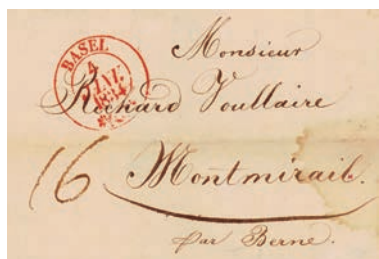 BASEL
4
Monsieur
Richard Voullaire
16
Montmirail.
par Berne.